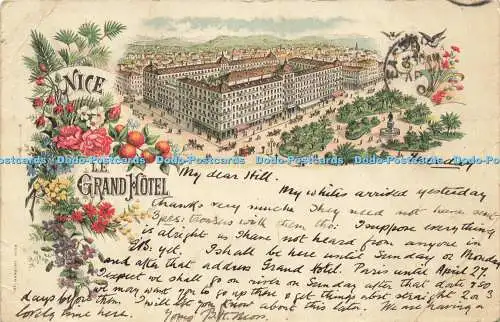 NICE
LE
GRAND HÔTEL
My dear Hill.
My whites arrived yesterday
thanks very much. They need not have sent
trousers with them tho. I suppose everything
is alright as I have not heard from anyone in
yet. I shall be here until Sunday or Monday
and after that address Grand Hotel. Paris until April 27.
I expect we shall go on river on Sunday after that date so
we may want you to go up there & get things abt straight 2 or 3
days before then. I will let you know about this later. We are having a
lovely time here.
Yours
Dodo-Postcards Dodo-Postcards Dodo-Postcards Dodo-Postcards Dodo-Postcards Dodo-Postcards